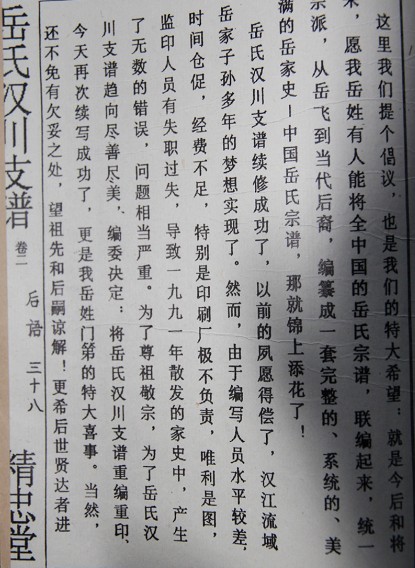 这里我们提个倡议，也是我们的特大希望：就是今后和将
来，愿我岳姓有人能将全中国的岳氏宗谱，联编起来，统一
宗派，从岳飞到当代后裔，编纂成一套完整的、系统的、美
满的岳家史－中国岳氏宗谱，那就锦上添花了！
岳氏汉川支谱续修成功了，以前的夙愿得偿了，汉江流域
岳家子孙多年的梦想实现了。然而，由于编写人员水平较差，
时间仓促，经费不足，特别是印刷厂极不负责，唯利是图，
监印人员有失职过失，导致一九九一年散发的家史中，产生
了无数的错误，问题相当严重。为了尊祖敬宗，为了岳氏汉
川支谱趋向尽善尽美，编委决定：将岳氏汉川支谱重编重印，
今天再次续写成功了，更是我岳姓门第的特大喜事。当然，
还不免有欠妥之处，望祖先和后嗣谅解！更希后世贤达者进
岳氏汉川支谱 卷二 后语 三十八 精忠堂